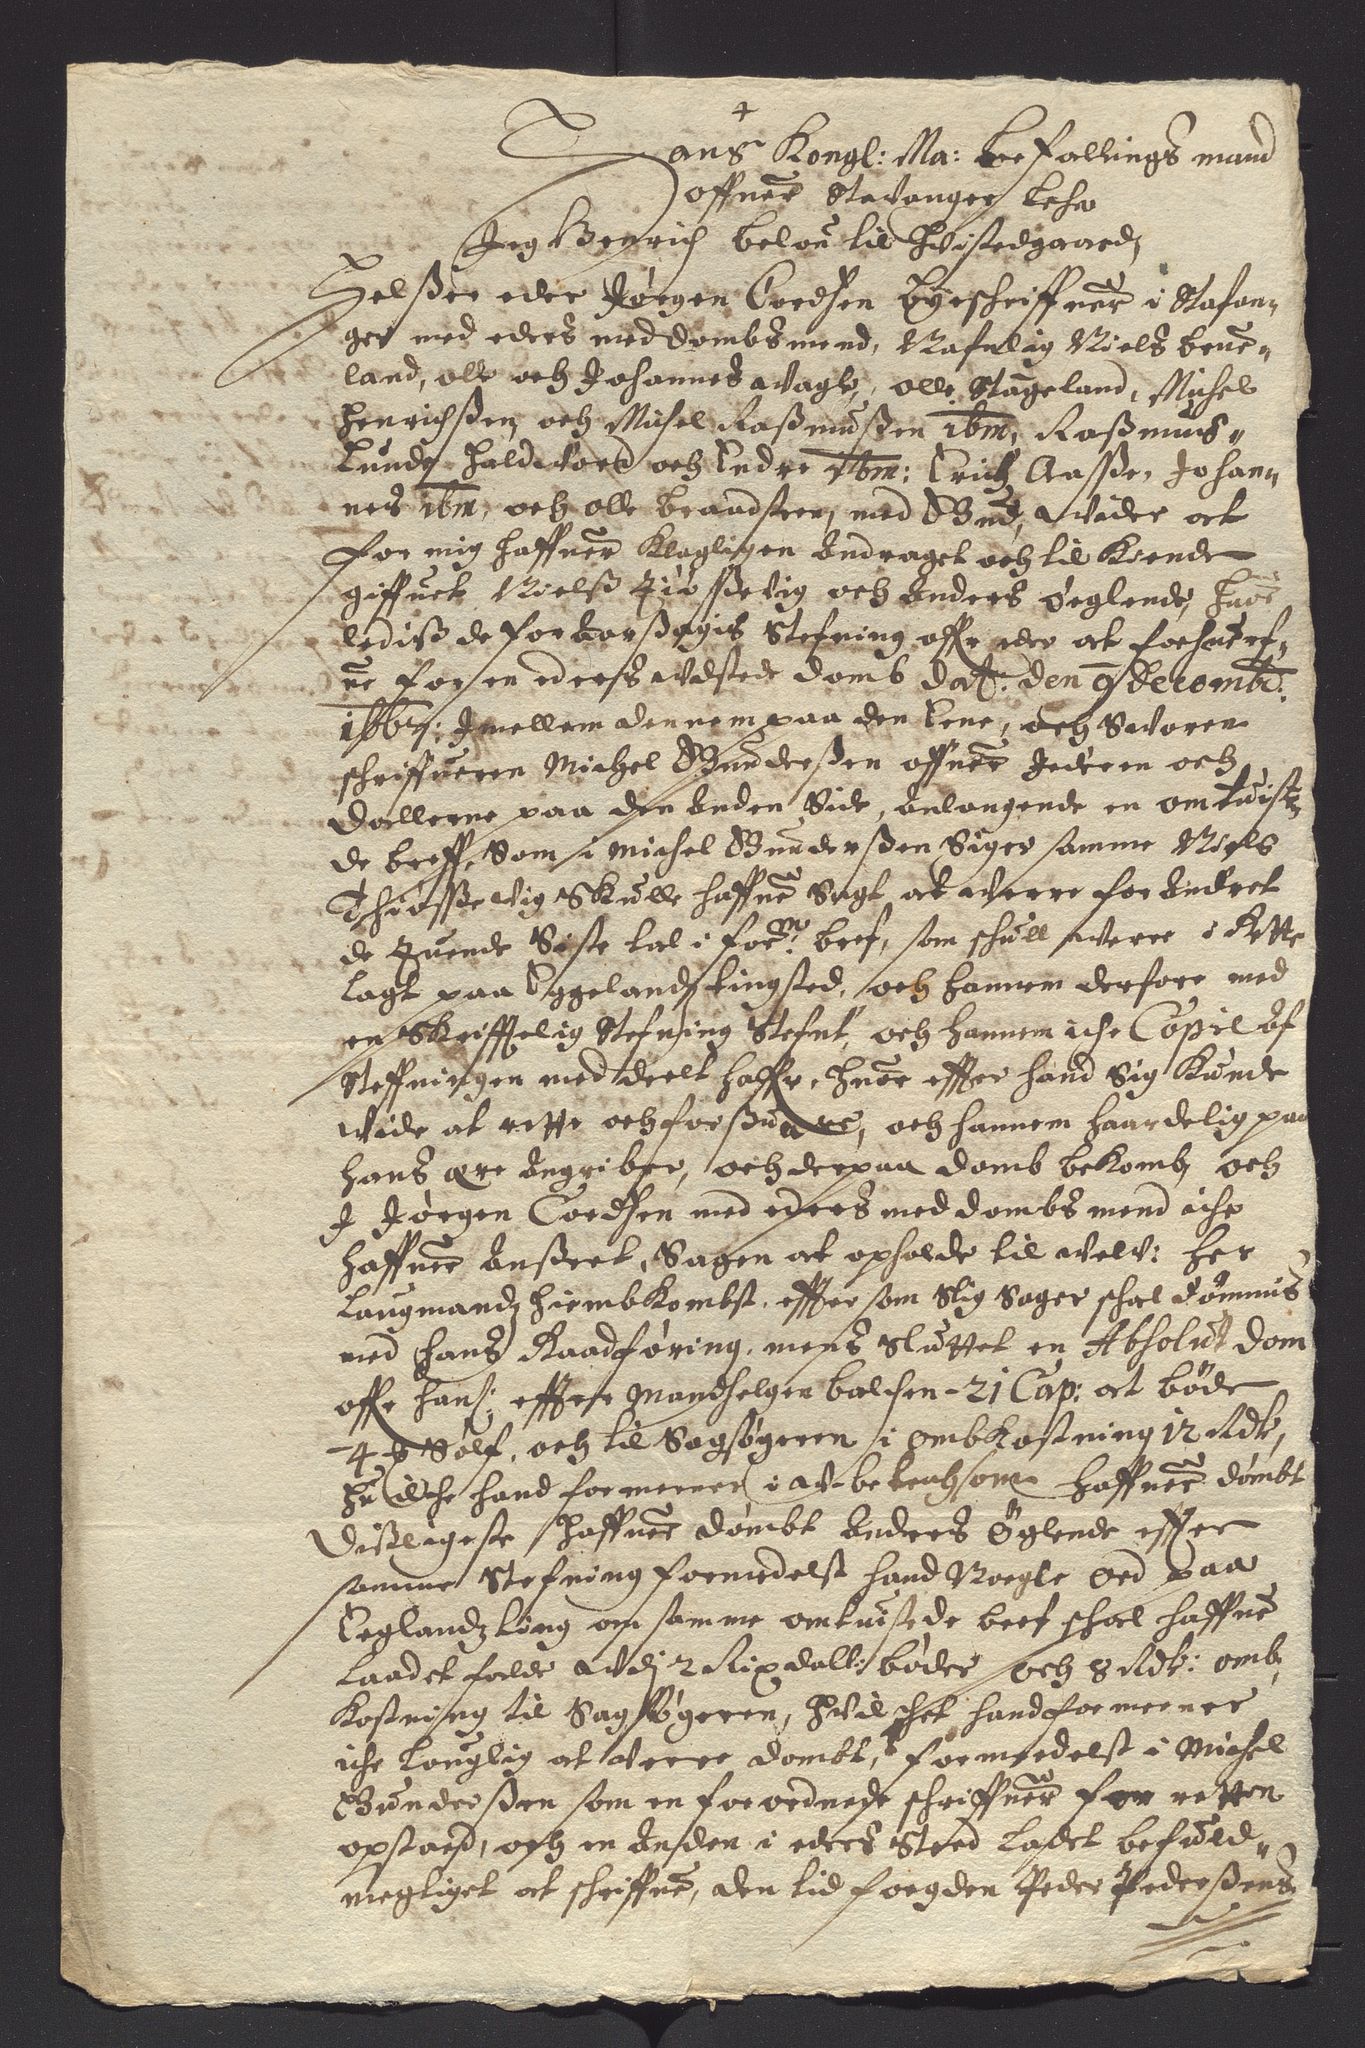 Hans Kongl: Ma: befallings mand
offuer Stavanger Lehn
Jeg Henrich Belou til Huistedgaard,
Helßer eder Jørgen Cordsen Byeschriffuer i Stafan¬
ger med eders meddombsmend, Nafnlig Niels brue¬
land, olle och Johannes Wagle, olle Stageland, Michel
Henrichßen och Michel Raßmußen ibm, Raßmus
Lunde Haldword och Endre ibm: Erich Aasße, Johan¬
nes ibm, och olle braadsteen, med Gud, Wider at
for mig haffuer Klagligen andraget och til Kiende
giffuet Nielß Tiøsßevig och Anders Øeglende, huor
lediß de foraarßagis Stefning offr eder at forhuerf¬
ue for en eders Udstede domb Dat: den 9 Decembr:
1667: Imellem dennem paa den Ene, och Sworen
schriffueren Michel Gundersßen offuer Jederen och
Dallerne paa den Anden Side, Anlangende en omtuist¬
de breff, Som i Michel Gundersßen Siger samme Niels
Thiøsßevig Skulle haffue Sagt at Werre forandret
de Tuende Siste tal i forn: bref, som schull Were i Rette
lagt paa Eggelands tingsted, och hannem derfore med
en Skrifftelig Stefning Stefnt, och hannem iche Copie af
Steffningen meddeelt haffr, huor effter hand Sig Kunde
Wide at rette och forßuare, och hannem haardelig paa
hans ære Angriber, och derpaa domb bekomb, och
I Jørgen Cordsen med eders meddombsmend iche
haffuer Ansßeet, Sagen at opholde til Welb: Her
Laugmandz Hiembkombst, effter som Slig Sager schal dømmis
med hans Raadføring, mens Sluttet en Absolut dom
offr hans: effter Mandhelgen balchen 21 Cap: at bøde
4 ℔ Sølf, och til Sagsøgeren i Ombkostning 12 Rdr,
huilche hand formeener i W-betenchsom haffuer dømbt
Dißligeste haffuer dømbt Anders Øglende effter
samme Stefning formedelst hand Nogle ord paa
Eeglandz ting om samme omtuistede bref schal haffue
Laadet falde Udj 2 Rixdallr: bøder och 8 Rdr: omb
Kostning til Sagsøgeren, Huilchet hand formeener
iche Louglig at Were dombt, formedelst i Michel
Gundersßen som en forordnede schriffuer for retten
opstaed, och en Anden i eders Steed Ladet befuld¬
megtiget at schriffue, den tid fogden Peder Pederßens